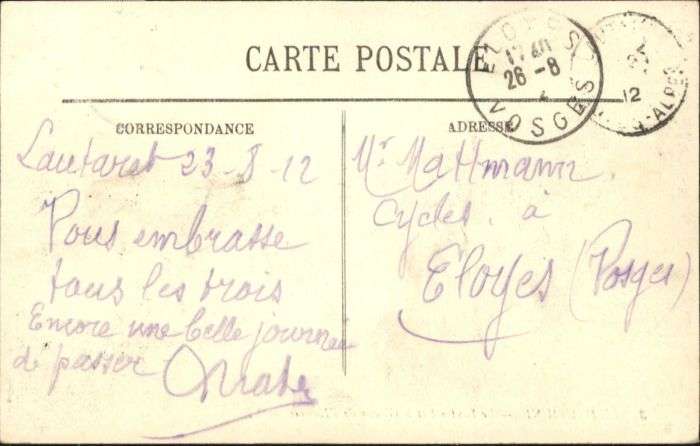 CARTE POSTALE
ELOYES
17 40
26 -8
VOSGES
12
-ALPES
CORRESPONDANCE
Lautaret 23-8-12
Vous embrasse
tous les trois
Encore une belle journée
de passer
ADRESSE
Mr Mattmann
Cycles à
Eloyes (Vosges)